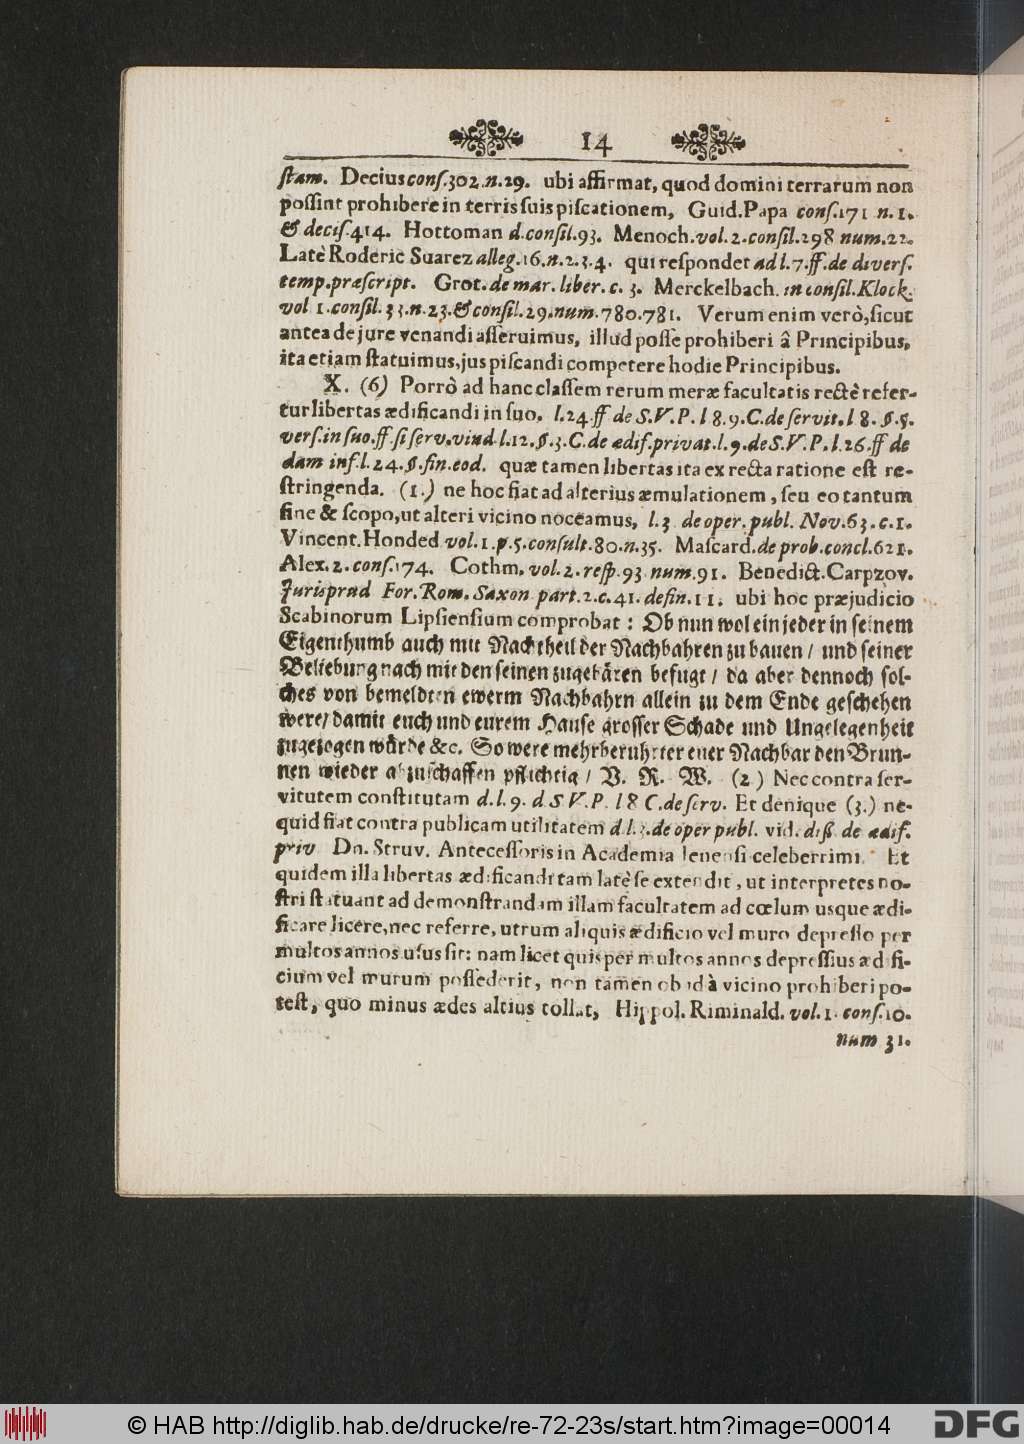 14
ſtam. Decius conſ.302.n.29. ubi affirmat, quod domini terrarum non
poſſint prohibere in terris ſuis piſcationem, Guid.Papa conſ.171 n.1.
& deciſ.414. Hottoman d.conſil.93. Menoch.vol.2.conſil.298 num.22.
Latè Roderic Suarez alleg.16.n.2.3.4. qui reſpondet ad l.7.ff.de diverſ.
temp.præſcript. Grot.de mar.liber.c.3. Merckelbach.in conſil.Klock.
vol 1.conſil.33.n.23.& conſil.29.num.780.781. Verum enim verò,ſicut
antea de jure venandi aſſeruimus, illud poſſe prohiberi â Principibus,
ita etiam ſtatuimus,jus piſcandi competere hodie Principibus.
X. (6) Porrò ad hanc claſſem rerum meræ facultatis rectè refer-
tur libertas ædificandi in ſuo. l.24.ff de S.V.P.l 8.9.C.de ſervit.l 8.§.5.
verſ.in ſuo.ff.ſi ſerv.vind.l.12.§.3.C.de ædif.privat.l.9.de S.V.P.l.26.ff de
dam inf.l.24.§.fin.eod. quæ tamen libertas ita ex recta ratione eſt re-
ſtringenda. (1.) ne hoc fiat ad alterius æmulationem, ſeu eo tantum
fine & ſcopo,ut alteri vicino noceamus, l.3 de oper.publ. Nov.63.c.1.
Vincent.Honded vol.1.p.5.conſult.80.n.35. Maſcard.de prob.concl.621.
Alex.2.conſ.174. Cothm.vol.2.reſp.93 num.91. Benedict.Carpzov.
Jurisprud For.Rom.Saxon part.2.c.41.defin.11. ubi hoc præjudicio
Scabinorum Lipſienſium comprobat: Ob nun wol ein jeder in ſeinem
Eigenthumb auch mit Nachtheil der Nachbahren zu bauen / und ſeiner
Beliebung nach mit den ſeinen zugebären befugt / da aber dennoch ſol-
ches von bemeldten ewerm Nachbahrn allein zu dem Ende geſchehen
were/ damit euch und eurem Hauſe groſſer Schade und Ungelegenheit
zugezogen würde &c. So were mehrberuhrter euer Nachbar den Brun-
nen wieder abzuſchaffen pflichtig / V. R. W. (2) Nec contra ſer-
vitutem conſtitutam d.l.9. d S V.P. l 8 C.de ſerv. Et denique (3.) ne-
quid fiat contra publicam utilitatem d l.3.de oper publ. vid.diſſ. de ædif.
priv Dn. Struv. Anteceſſoris in Academia Jenenſi celeberrimi. Et
quidem illa libertas ædificandi tam latè ſe extendit, ut interpretes no-
ſtri ſtatuant ad demonſtrandam illam facultatem ad cœlum usque ædi-
ficare licere,nec referre, utrum aliquis ædificio vel muro depreſſo per
multos annos uſus ſit: nam licet quis per multos annos depreſſius ædifi-
cium vel murum poſſederit, non tamen ob id à vicino prohiberi po-
teſt, quo minus ædes altius tollat, Hippol. Riminald. vol.1.conſ.10.
num 31.
© HAB http://diglib.hab.de/drucke/re-72-23s/start.htm?image=00014
DFG